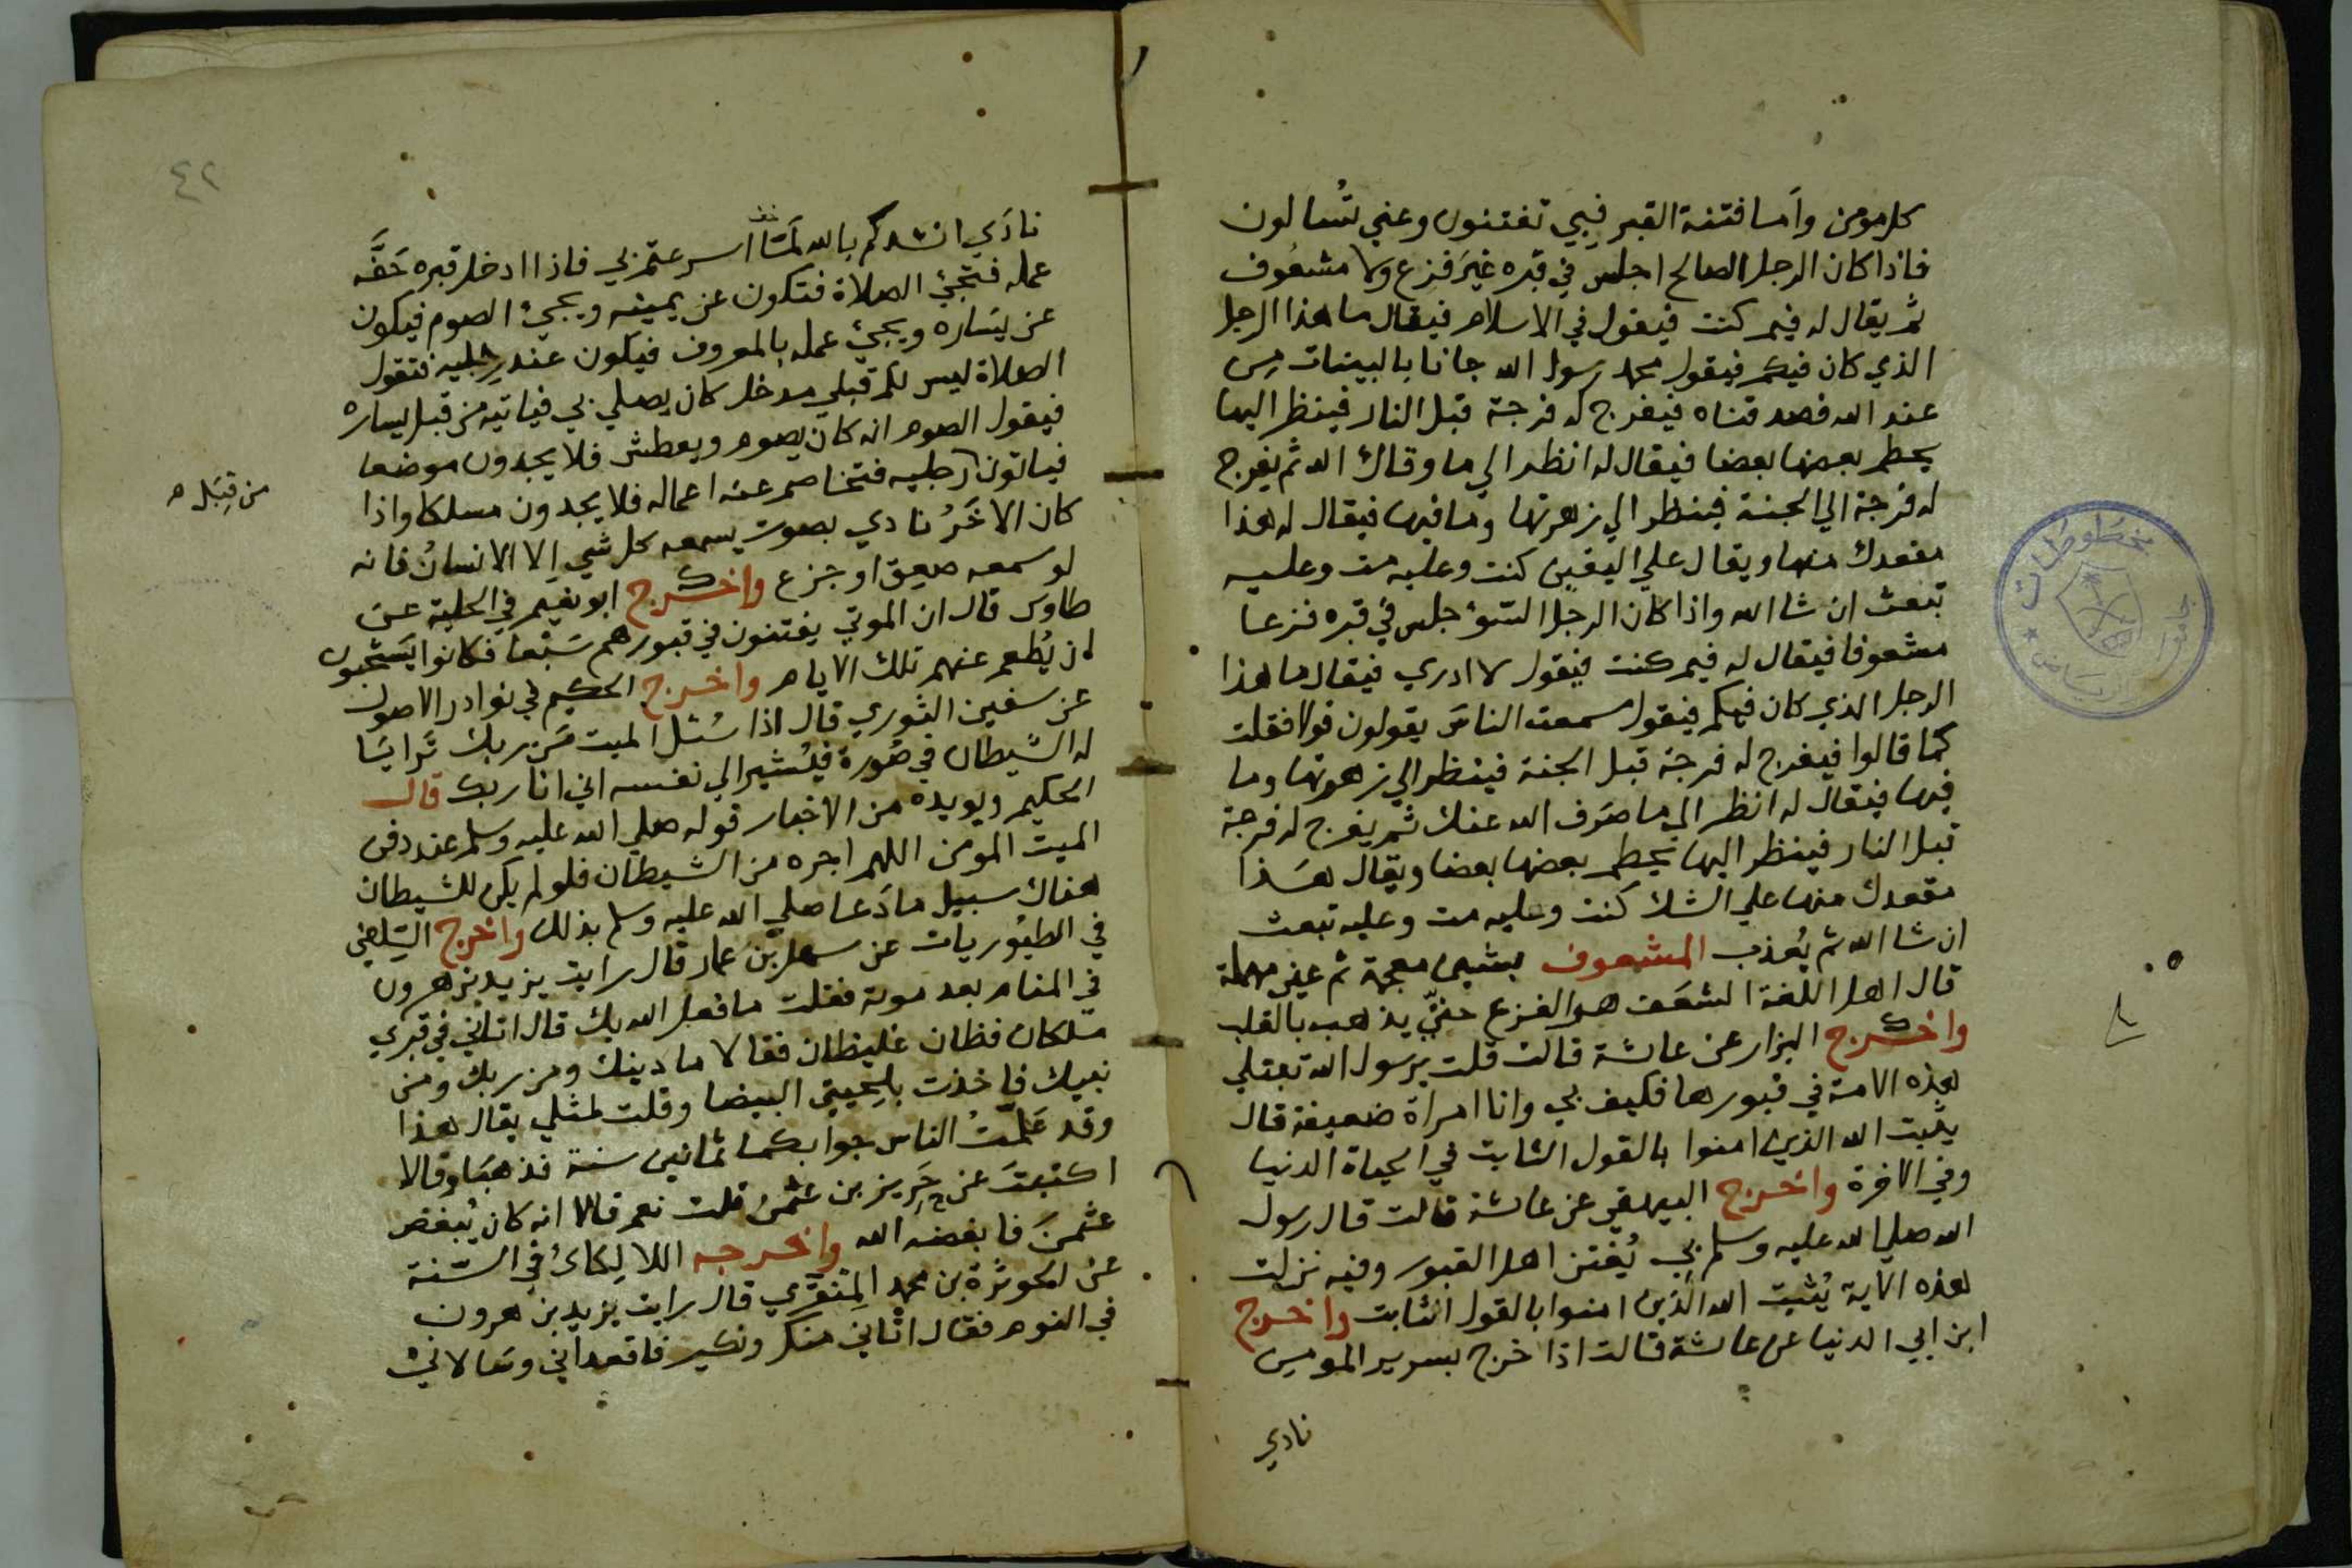 كل مومن واما فتنة القبر فبي تفتنون وعني تُسالون
فاذا كان الرجل الصالح اجلس في قبره غيرَ فزع ولا مشعُوف
ثم يقال له فيم كنت فيقول في الاسلام فيقال ما هذا الرجل
الذي كان فيكم فيقول محمد رسول الله جانا بالبينات من
عند الله فصدقناه فيفرج له فرجة قبل النار فينظر اليها
يحطم بعضها بعضا فيقال له انظر الي ما وقاك الله ثم يفرج
له فرجة الي الجنة فينظر الي زهرتها وما فيها فيقال له هذا
مقعدك منها ويقال علي اليقين كنت وعليه مت وعليه
تبعث ان شا الله واذا كان الرجل السوء جلس في قبره فزعا
مشعوفا فيقال له فيم كنت فيقول لا ادري فيقال ما هذا
الرجل الذي كان فيكم فيقول سمعت الناس يقولون قولا فقلت
كما قالوا فيفرج له فرجة قبل الجنة فينظر الي زهرتها وما
فيها فيقال له انظر الي ما صَرَف الله عنك ثم يفرج له فرجة
قبل النار فينظر اليها يحطم بعضها بعضا ويقال هذا
مقعدك منها علي الشك كنت وعليه مت وعليه تبعث
ان شا الله ثم يُعذب المشعوف بشين معجمة ثم عين مهملة
قال اهل اللغة الشعَف هو الفزع حتيّ يذهب بالقلب
واخرج البزار عن عائشة قالت قلت يرسول الله تبتلي
هذه الامة في قبورها فكيف بي وانا امراة ضعيفة قال
يثبت الله الذين امنوا بالقول الثابت في الحياة الدنيا
وفي الاخرة واخرج البيهقي عن عائشة قالت قال رسول
الله صلي الله عليه وسلم بي يُفتن اهل القبور وفيه نزلت
هذه الاية يُثبت الله الذين امنوا بالقول الثابت واخرج
ابن ابي الدنيا عن عائشة قالت اذا خرج بسرير المومن
نادي
مخطوطات
جامعة الرياض
٤٢
نادَي انشدكم بالله لَمَّا اسرعتم بي فاذا ادخل قبره حَفَّه
عمله فتجيُ الصلاة فتكون عن يمينه ويجيُ الصوم فيكون
عن يَساره ويجيُ عمله بالمعروف فيكون عند رجليه فتقول
الصلاة ليس لكم قبلي مدخل كان يصلي بي فياتيه من قبل يساره
فيقول الصوم انه كان يصوم ويعطش فلا يجدون موضعا
فياتون رجليه فتخاصم عنه اعماله فلا يجدون مسلكا واذا
من قِبَل ه
كان الاخَرُ نادي بصوت يسمعه كل شي الا الانسانُ فانه
لو سمعه صعِق او جزع واخرج ابو نعيم في الحلية عن
طاوس قال ان الموتي يفتنون في قبورهم سَبْعا فكانوا يَستحبون
ان يُطعم عنهم تلك الايام واخرج الحكيم في نوادر الاصول
عن سفين الثوري قال اذا سُئل الميت مَن ربك تَرايَا
له الشيطان في صُورة فيُشير الي نفسه اني انا ربك قال
الحكيم ويويده من الاخبار قوله صلي الله عليه وسلم عند دفن
الميت المومن اللهم اجره من الشيطان فلو لم يكن للشيطان
هناك سبيل ما دَعا صلي الله عليه وسلم بذلك واخرج السِلفي
في الطيُوريات عن سهل بن عمار قال رايت يزيد بن هرون
في المنام بعد موته فقلت ما فعل الله بك قال اتاني في قبري
مَلكان فظان غليظان فقالا ما دينك ومن ربك ومن
نبيك فاخذت بلحيتي البيضا وقلت لمثلي يقال هذا
وقد عَلّمتُ الناس جوابكما ثمانين سنة فذهبَا وقالا
اكتبتَ عن حَرِيز بن عثمن قلت نعم قالا انه كان يُبغض
عثمنَ فابغضه الله واخرجه اللالِكائ في السّنة
عن الحوثرة بن محمد المِنقَري قال رايت يزيد بن هرون
في النوم فقال اتاني منكر ونكير فاقعداني وسَالاني